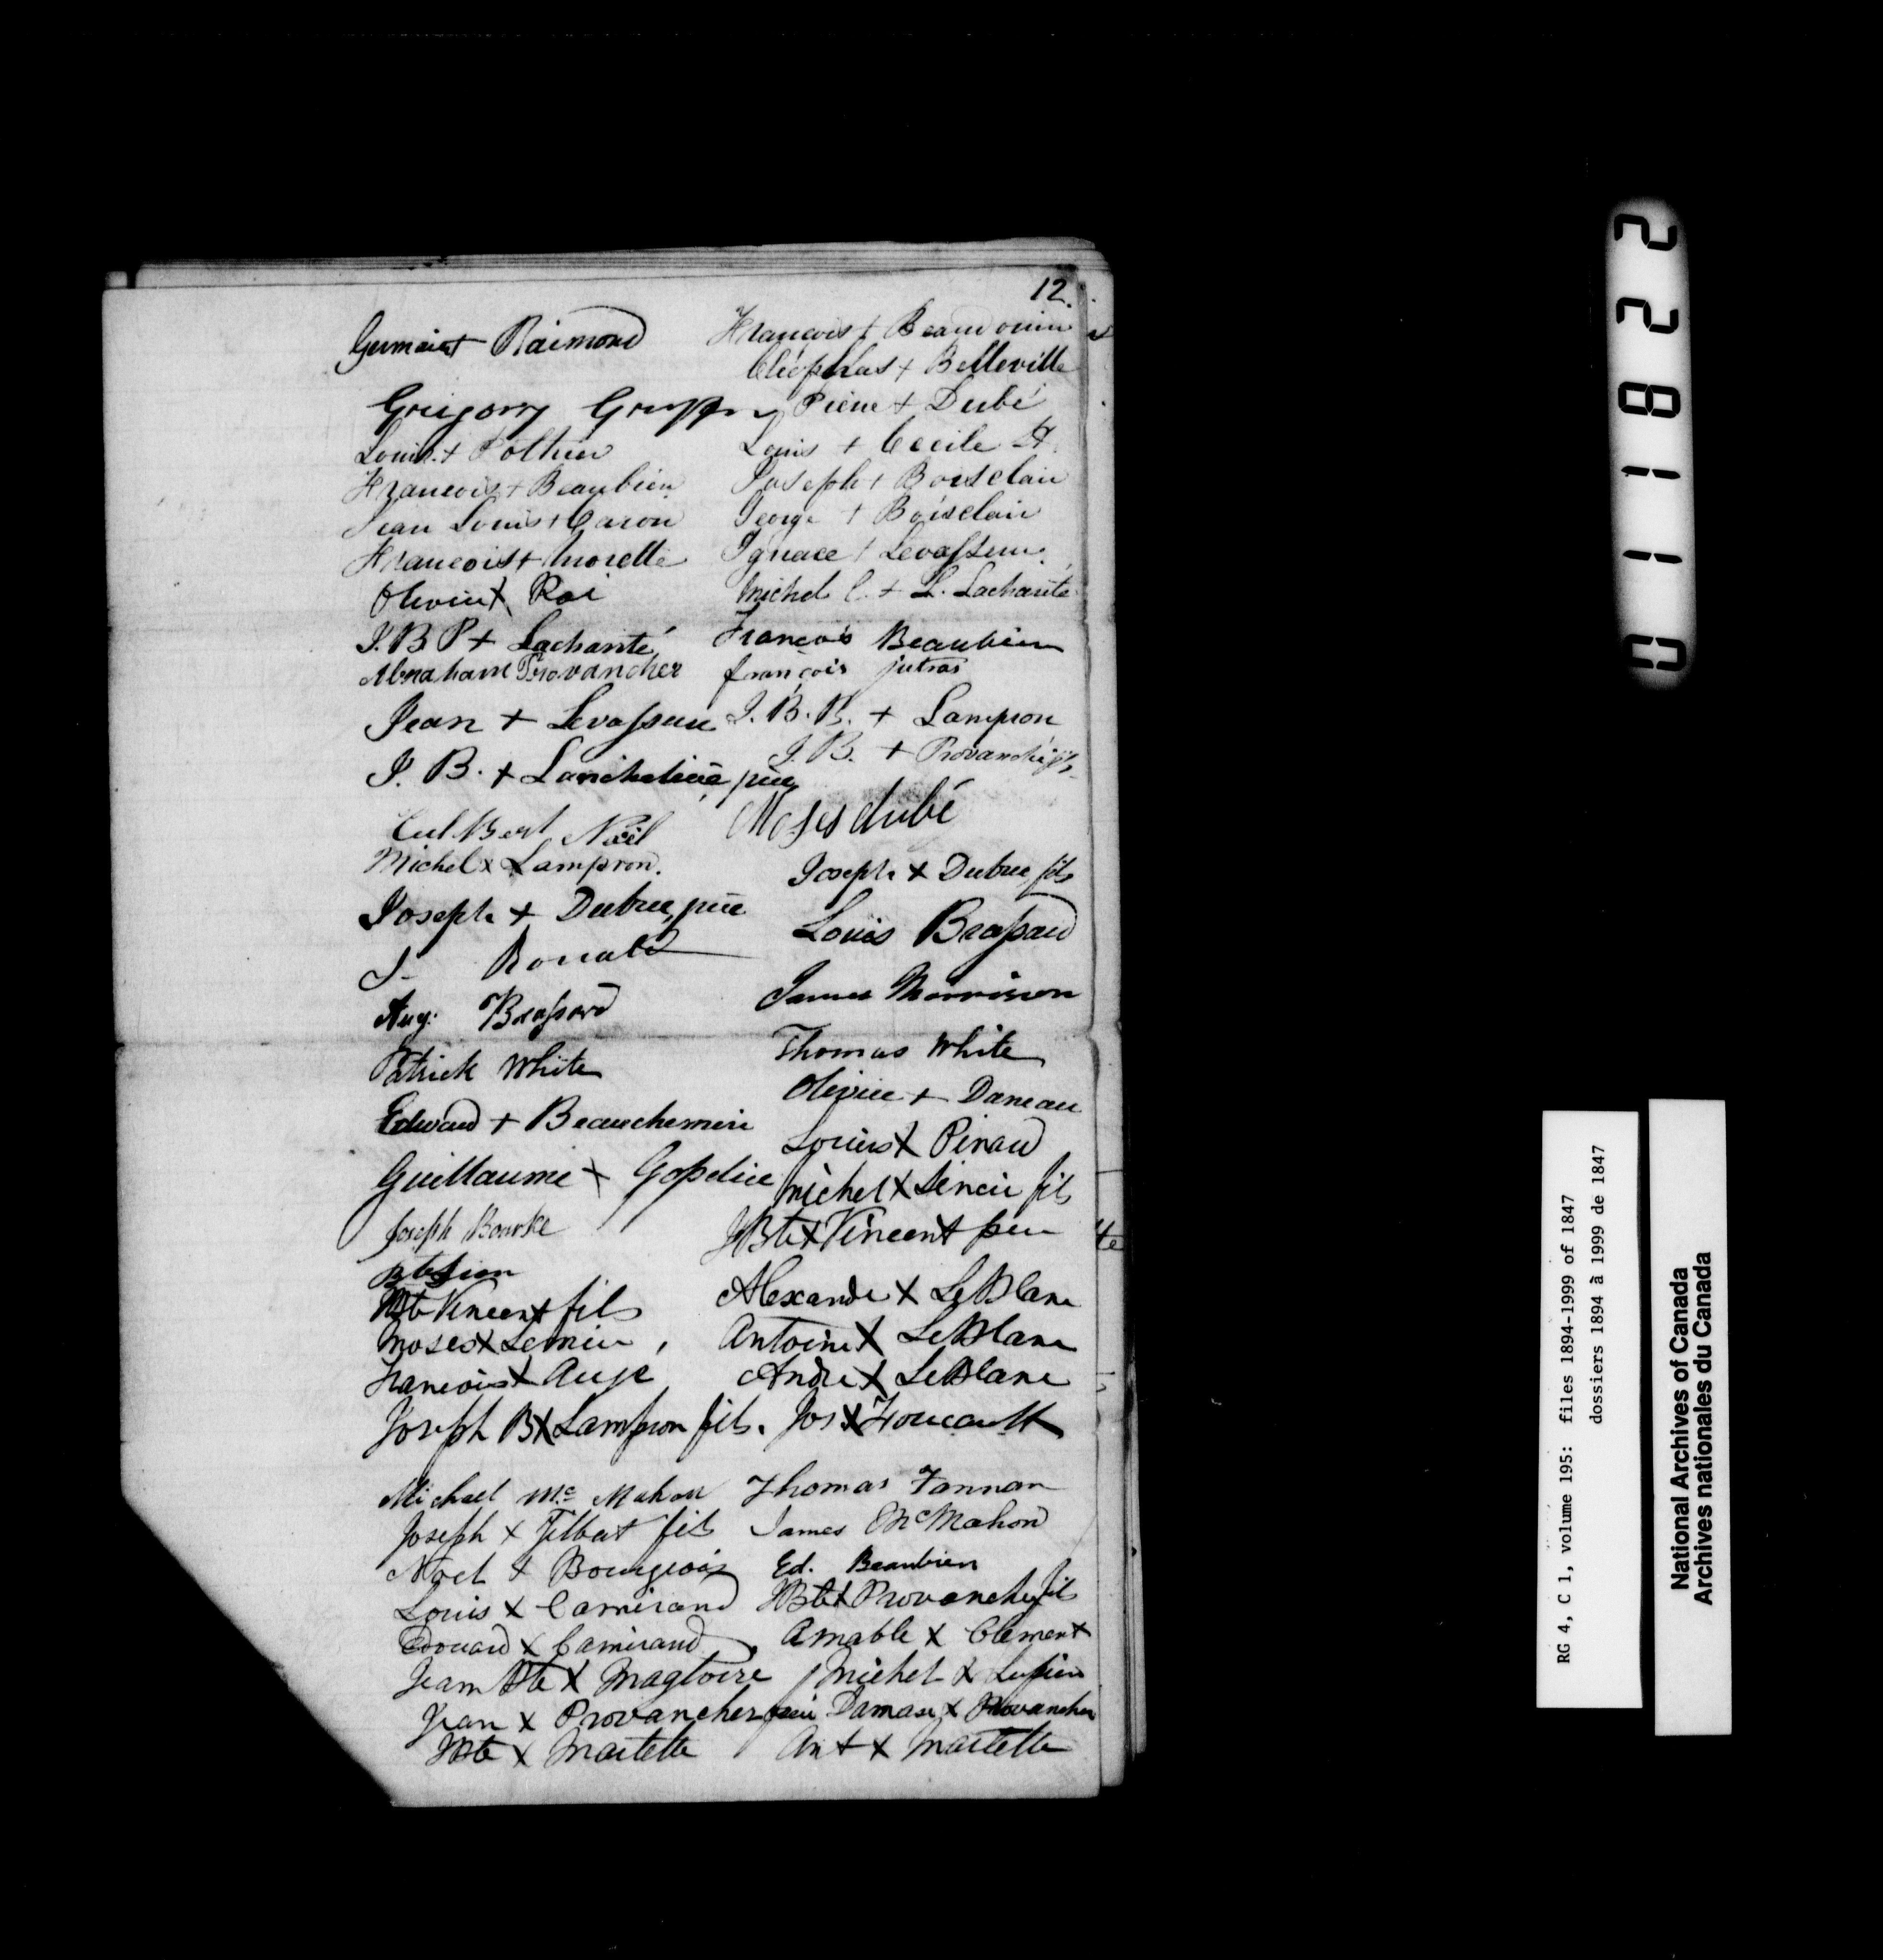 12.
Germain + Raimond
Gregorry
Louis + Pothier
Francois + Beaubien
Jean Louis + Caron
Francois + Morelle
Olivier X Roi
J. B P + Lacharité
Abraham Provancher
Jean + Levasseur
J. B. + père
Cul Bert Noël
Michel x Lampron.
Joseph + Dubuc, père
J. Ronald
Aug. Brassard
Patrick White
Edward + Beauchemin
Guillaume +
Joseph Bourke
JBte Vincent fils
Moses X Lemire
Francois X Auge
Joseph B X Lampron fils.
Michael Mc. Mahon
Joseph x fils
Noel x Bourgeois
Louis x Camirand
Edouard x Camirand
Jean Bte X Magloire
Jean x Provancher père
JBte x Martelle
François + Beaudouin
Cléophas + Belleville
Pierre + Dubé
Louis + Cecile
Joseph + Boisclair
George + Boisclair
Ignace + Levasseur
Michel C. + L. Lacharité
François Beaubien
françois jutras
J. B. B. + Lampron
J. B. + Provanché
Moses dubé
Joseph + Dubuc, fils
Louis Brassard
James Morrison
Thomas White
Olivier + Daneau
Louis X Pinard
Michel X fils
JBte X Vincent père
Alexandre X LeBlanc
Antoine X LeBlanc
Andre X LeBlanc
Jos X Foucault
Thomas Fannan
James McMahon
Ed. Beaubien
JBte X Provancher fils
Amable X Clement
Michel X Lupien
Damase X Provancher
Ant X Martelle
0111822
RG 4, C 1, volume 195: files 1894-1999 of 1847
dossiers 1894 à 1999 de 1847
National Archives of Canada
Archives nationales du Canada